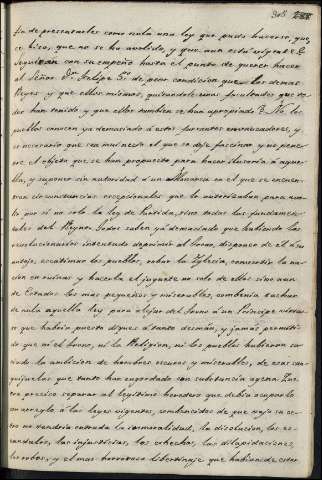 308
fin de presentarles como nula una ley que pudo hacerse, que
se hizo, que no se ha abolido, y que aun está vigente?
Seguirán con su empeño hasta el punto de querer hacer
al Señor Dn. Felipe 5º de peor condicion que los demas
Reyes y que ellos mismos, quitandole unas facultades que to-
dos han tenido y que ellos tambien se han apropiado? No, los
pueblos conocen ya demasiado á estos farsantes embrolladores, y
es necesario que sea manifiesto el que se dejó faccioso y no pene-
tre el objeto que se han propuesto para hacer ilusoria á aque-
lla, y suponer sin autoridad á un Monarca en el que se encuen-
tran circunstancias excepcionales que le autorizaban para anu-
lar por sí no solo la ley de Partida, sino todas las fundamen-
tales del Reyno. Todos saben ya demasiado que habiendo los
revolucionarios intentado deprimir al trono, disponer de él á su
antojo, esclavizar los pueblos, robar la Iglesia, convertir la na-
cion en ruinas y hacerla el juguete no solo de ellos sino aun
de Estados los mas pequeños y miserables, convenia tachar
de nula aquella ley para alejar del trono á un Príncipe virtuo-
so que habria puesto diques á tanto desmán, y jamás permiti-
do que ni el trono, ni la Religion, ni los pueblos hubieran sa-
ciado la ambicion de hombres oscuros y miserables, de esas san-
guijuelas que tanto han engordado con substancia agena. Les
era preciso separar al legitimo heredero que debia ocuparlo
con arreglo á las leyes vigentes, convencidos de que bajo su ce-
tro no tendria entrada la inmoralidad, la disolucion, los es-
candalos, las injusticias, los cohechos, las dilapidaciones,
los robos, y el mas horroroso libertinaje que habian de ester-